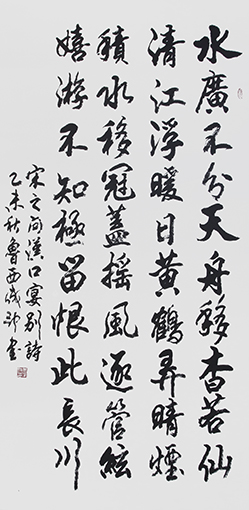 水廣不分天舟移杳若仙
清江浮暖日黃鶴弄晴煙
積水移冠蓋搖風逐管絃
嬉游不知極留恨此長川
宋之问漢口宴別詩
乙未秋魯西成書